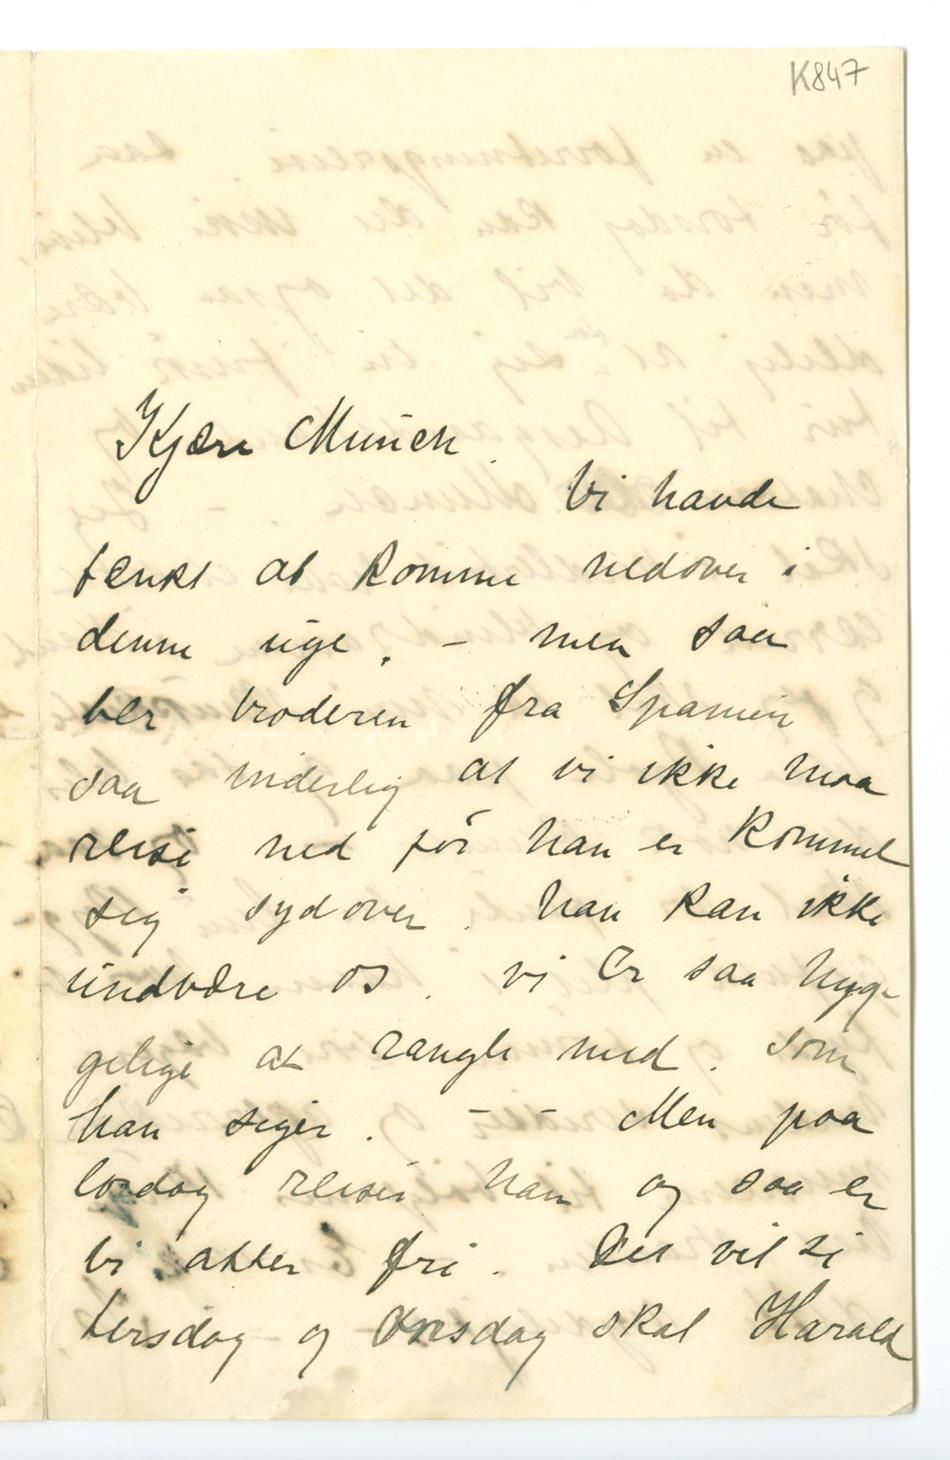 K847
Kjære Munch.
Vi havde
tænkt at komme nedover i
denne uge. – men saa
ber broderen fra Spanien
saa inderlig at vi ikke maa
reise ned før han er kommet
sig sydover. han kan ikke
undvære os. vi er saa hyg-
gelige at rangle med. som
han siger. – – Men paa
lørdag reiser han og saa er
vi atter fri. Det vil si
tirsdag og Onsdag skal Harald